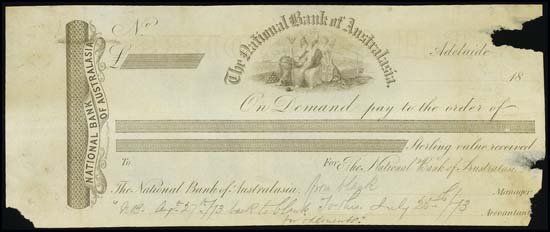 No
The National Bank of Australasia.
£
Adelaide
18
NATIONAL BANK
OF AUSTRALASIA
On Demand pay to the order of
Sterling value received
To
For The National Bank of Australasia
The National Bank of Australasia.
Manager
Augt 27th /73 back to July 25th /73
Accountant